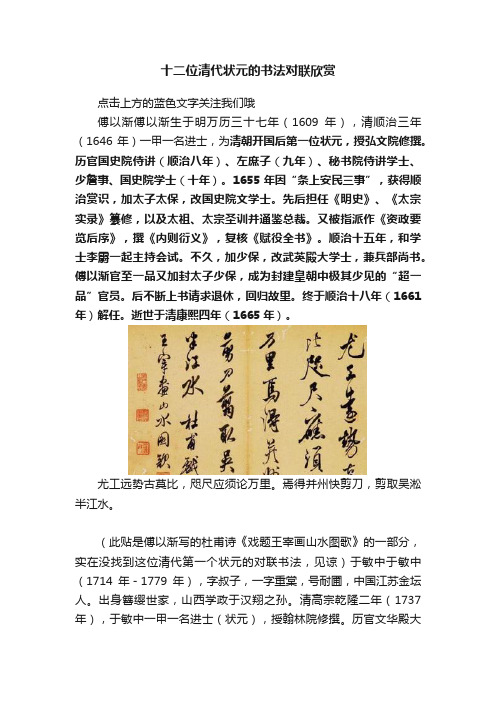 十二位清代状元的书法对联欣赏
点击上方的蓝色文字关注我们哦
傅以渐傅以渐生于明万历三十七年（1609 年），清顺治三年
（1646 年）一甲一名进士，为清朝开国后第一位状元，授弘文院修撰。
历官国史院侍讲（顺治八年）、左庶子（九年）、秘书院侍讲学士、
少詹事、国史院学士（十年）。1655 年因“条上安民三事”，获得顺
治赏识，加太子太保，改国史院文学士。先后担任《明史》、《太宗
实录》纂修，以及太祖、太宗圣训并通鉴总裁。又被指派作《资政要
览后序》，撰《内则衍义》，复核《赋役全书》。顺治十五年，和学
士李霨一起主持会试。不久，加少保，改武英殿大学士，兼兵部尚书。
傅以渐官至一品又加封太子少保，成为封建皇朝中极其少见的“超一
品”官员。后不断上书请求退休，回归故里。终于顺治十八年（1661
年）解任。逝世于清康熙四年（1665 年）。
尤工遠勢古
比咫尺應須
万里焉得并州
剪刀翦取吳
半江水 杜甫戲
王宰畫山水圖歌
尤工远势古莫比，咫尺应须论万里。焉得并州快剪刀，剪取吴淞
半江水。
（此贴是傅以渐写的杜甫诗《戏题王宰画山水图歌》的一部分，
实在没找到这位清代第一个状元的对联书法，见谅）于敏中于敏中
（1714 年－1779 年），字叔子，一字重棠，号耐圃，中国江苏金坛
人。出身簪缨世家，山西学政于汉翔之孙。清高宗乾隆二年（1737
年），于敏中一甲一名进士（状元），授翰林院修撰。历官文华殿大